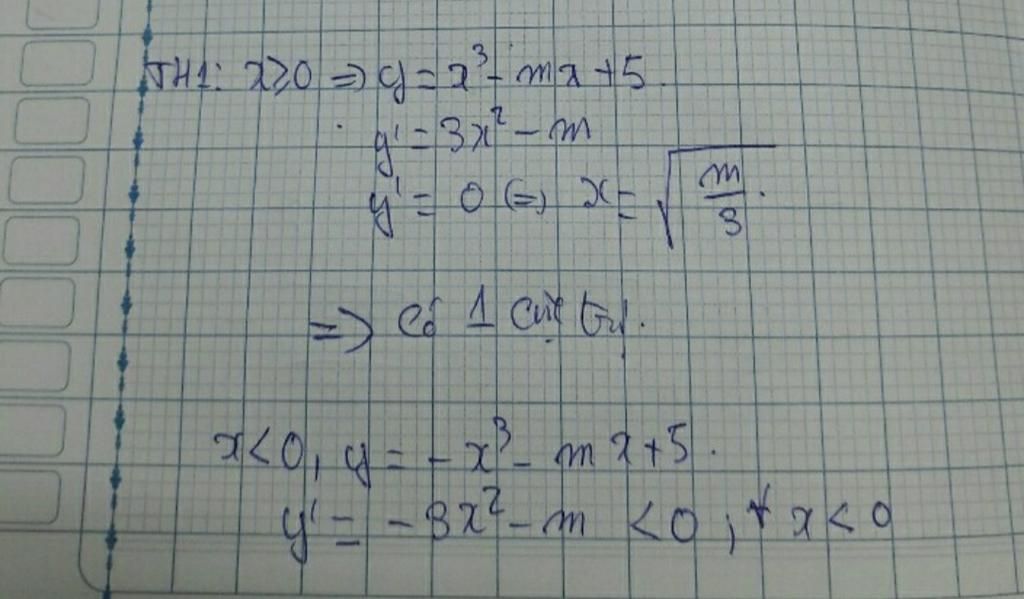 TH1: x ≥ 0 ⇒ y = x³ - mx + 5.
y' = 3x² - m
y' = 0 ⇔ x = √(m/3).
⇒ Có 1 cực trị.
x < 0, y = - x³ - mx + 5.
y' = - 3x² - m < 0 ; ∀ x < 0